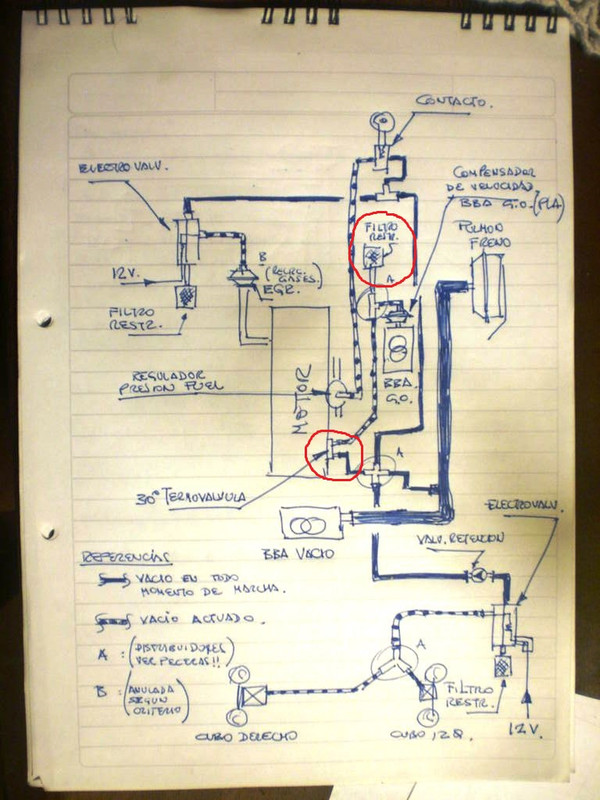 CONTACTO.
ELECTROVALV.
COMPENSADOR
DE VELOCIDAD
BBA G.O. (PLA)
PULMON
FRENO
FILTRO
RESTR.
A
12V.
B
(RECIRC.
GASES.)
EGR.
FILTRO
RESTR.
BBA
G.O.
REGULADOR
PRESION FUEL
MOTOR
A
30° TERMOVALVULA
ELECTROVALV.
BBA VACIO
VALV. RETENCION
REFERENCIAS
VACIO EN TODO
MOMENTO DE MARCHA.
VACIO ACTUADO.
A : (DISTRIBUIDORES
VER PECERAS!!)
A
B : (ANULADA
SEGUN
CRITERIO)
C
C
C
C
FILTRO
RESTR.
12V.
CUBO DERECHO
CUBO IZQ.